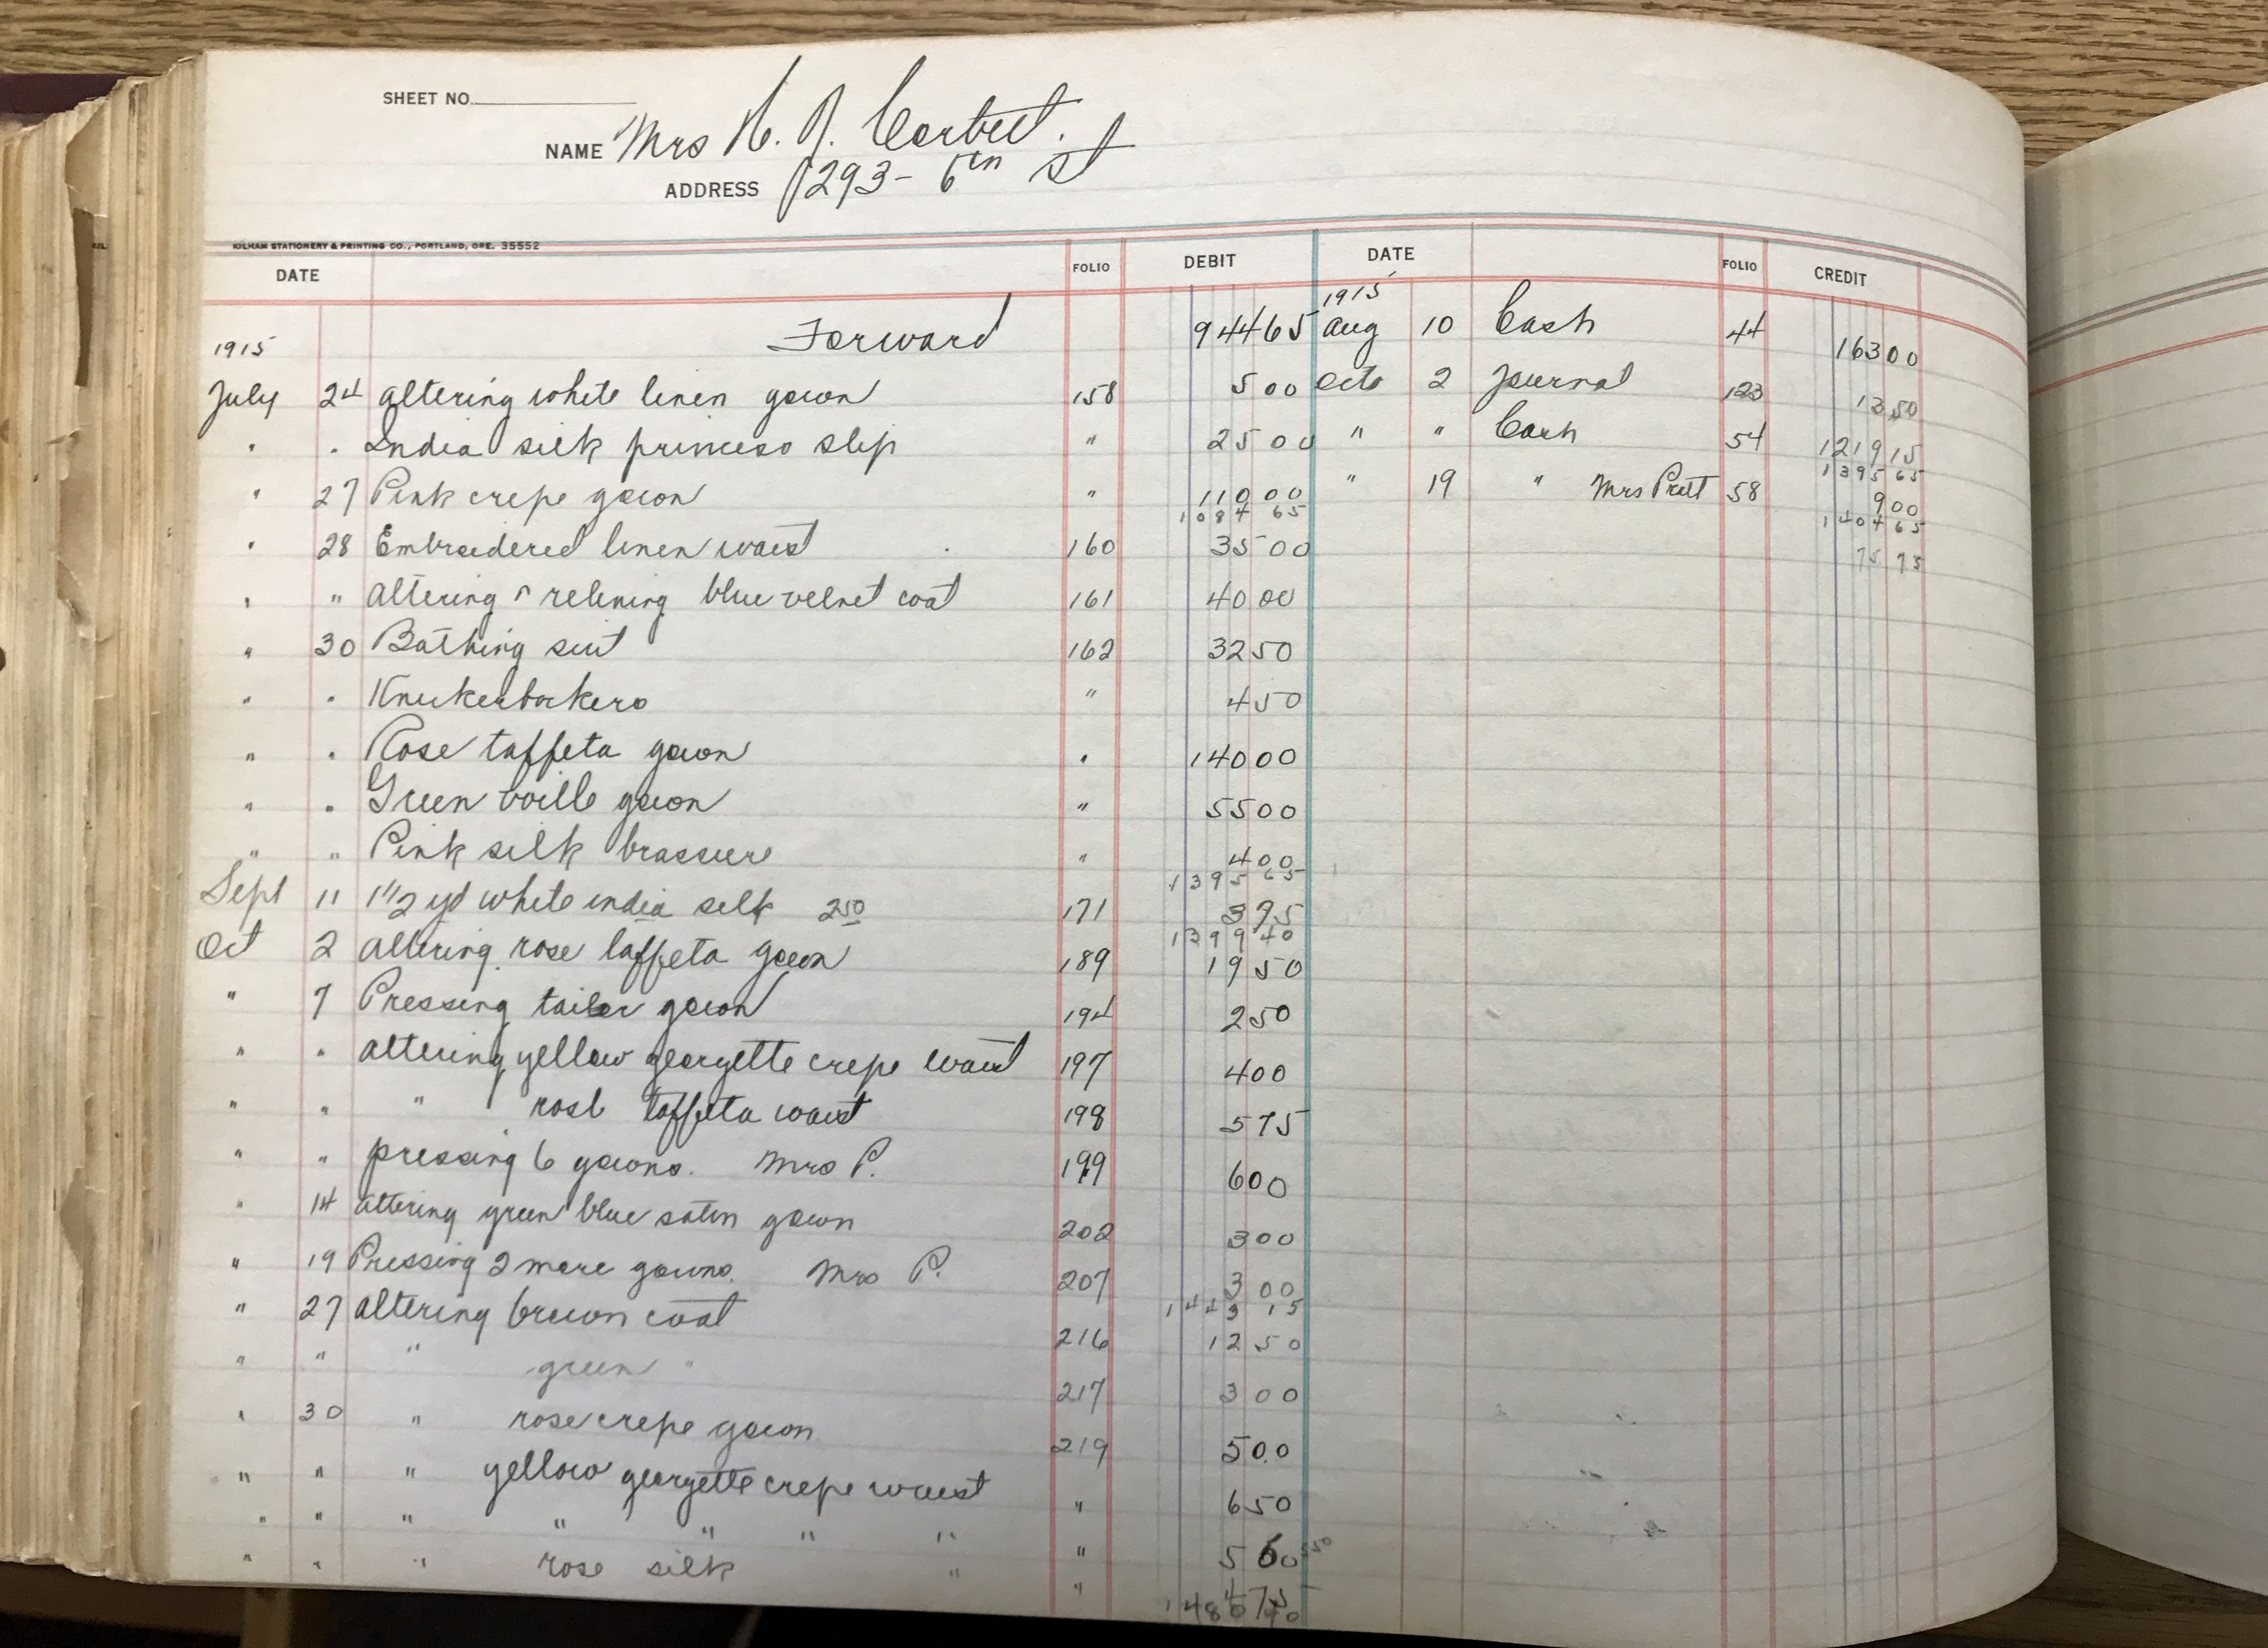 SHEET NO.
NAME Mrs H. J. Corbett.
ADDRESS 293 - 6th st
KILHAM STATIONERY & PRINTING CO., PORTLAND, ORE. 35552
DATE FOLIO DEBIT DATE FOLIO CREDIT
1915
Forward 944 65 Aug 10 Cash 44 163 00
1915
July 24 altering white linen gown 158 5 00 Octo 2 Journal 123 13 50
" " India silk princess slip " 25 00 " " Cash 54 1219 15
1395 65
" 27 Pink crepe gown " 110 00 " 19 " Mrs Pratt 58 9 00
1084 65
1404 65
" 28 Embroidered linen waist 160 35 00
75 75
" " altering & relining blue velvet coat 161 40 00
" 30 Bathing suit 162 32 50
" " Knickerbockers " 4 50
" " Rose taffeta gown " 140 00
" " Green voille gown " 55 00
" " Pink silk brassiere " 4 00
1395 65
Sept 11 1 1/2 yd white india silk 250 171 3 75
1399 40
Oct 2 altering rose taffeta gown 189 19 50
" 7 Pressing tailor gown 194 2 50
" " altering yellow georgette crepe waist 197 4 00
" " " rose taffeta waist 198 5 75
" " pressing 6 gowns. Mrs P. 199 6 00
" 14 altering green blue satin gown 202 3 00
" 19 Pressing 2 more gowns. Mrs P. 207 3 00
1443 15
" 27 altering brown coat 216 12 50
" " " green " 217 3 00
" 30 " rose crepe gown 219 5 00
" " " yellow georgette crepe waist " 6 50
" " " " " " " "
" " " rose silk " "